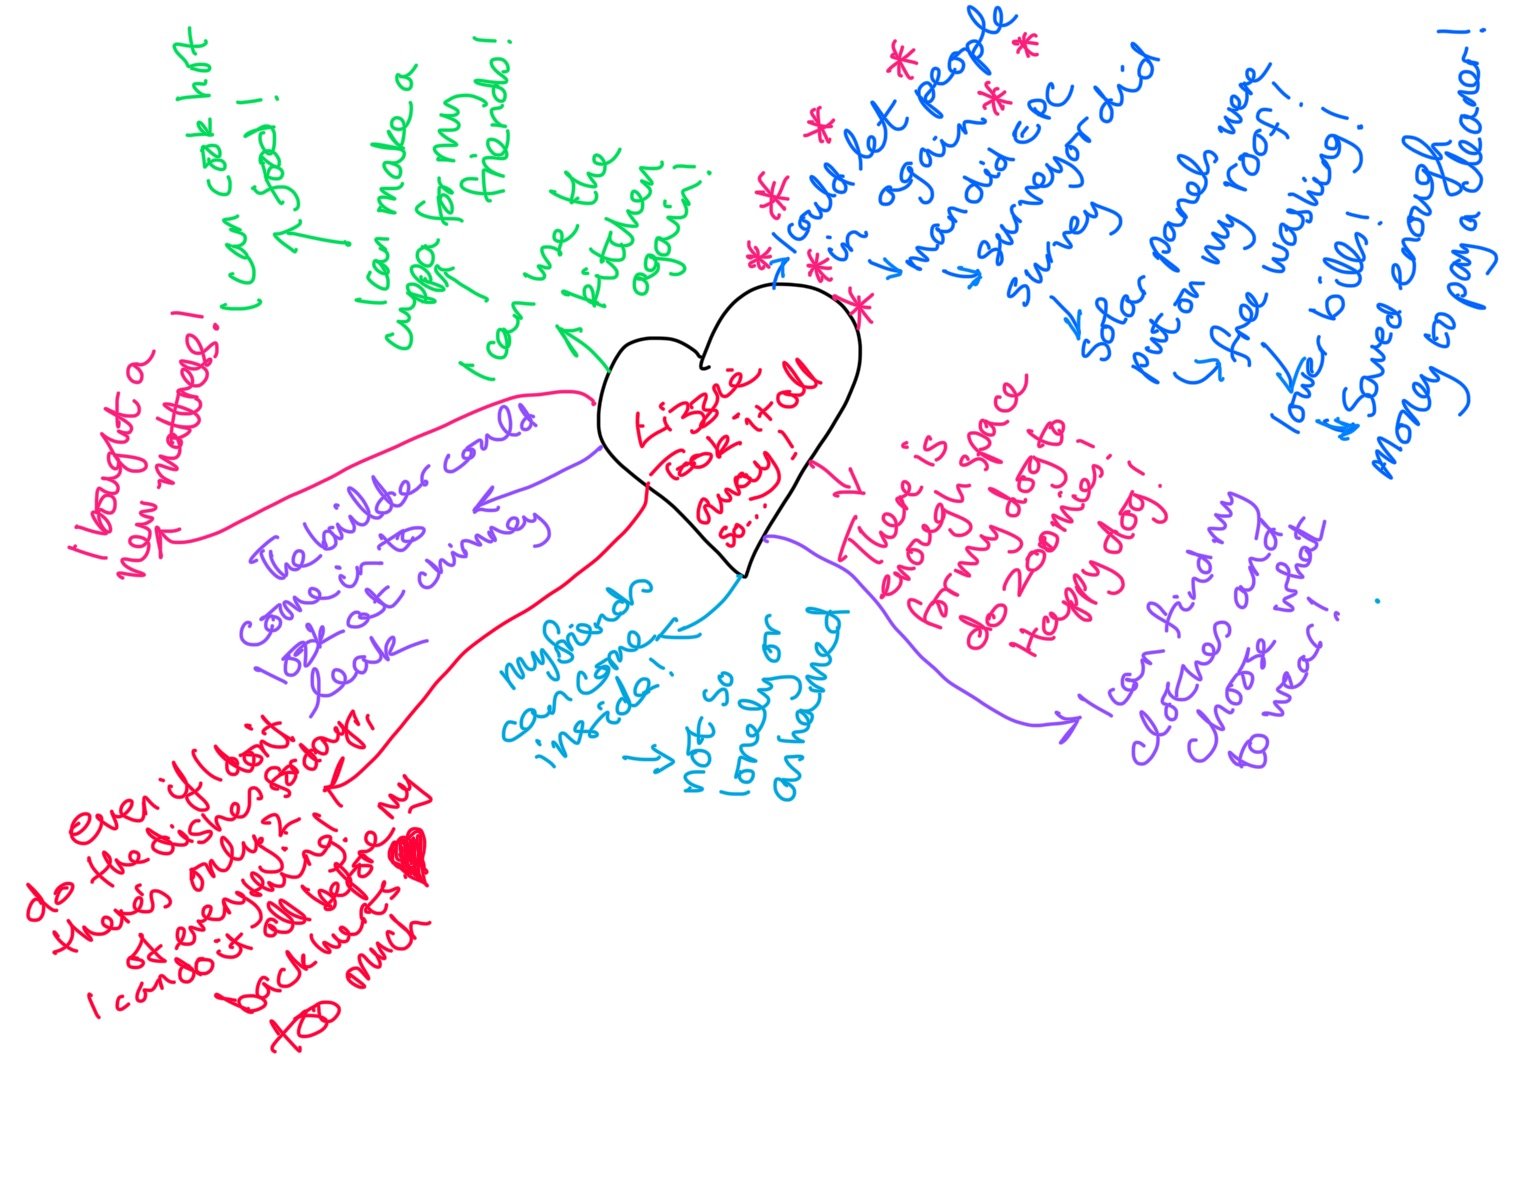 Lizzie
took it all
away!
so...
I can use the
kitchen
again!
I can make a
cuppa for my
friends!
I can cook hot
food!
I bought a
new mattress!
The builder could
come in to
look at chimney
leak
even if I don't
do the dishes for days,
there's only 2
of everything!
I can do it all before my
back hurts
too much
my friends
can come
inside!
not so
lonely or
ashamed
I can find my
clothes and
choose what
to wear!
There is
enough space
for my dog to
do zoomies!
Happy dog!
I could let people
in again
man did EPC
surveyor did
survey
Solar panels were
put on my roof!
free washing!
lower bills!
Saved enough
money to pay a cleaner!